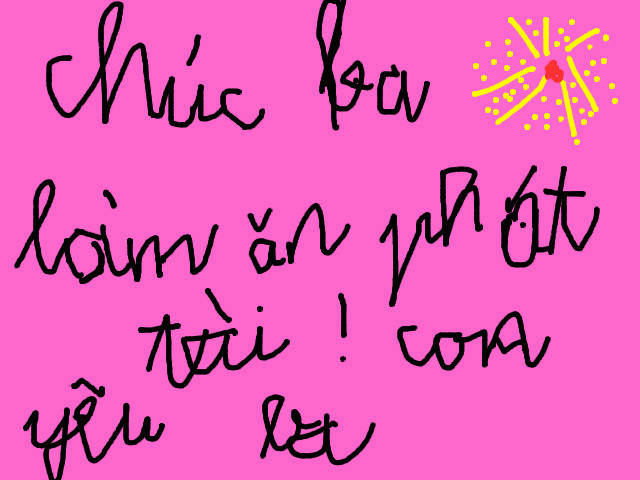 chúc ba
làm ăn phát
tài! con
yễu ba